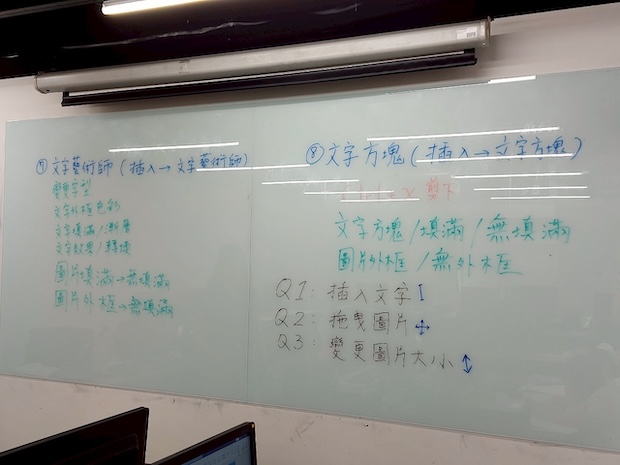 ⑦文字藝術師(插入→文字藝術師)
變更字型
文字外框色彩
文字填滿/漸層
文字效果/轉換
圖片填滿→無填滿
圖片外框→無填滿
⑧文字方塊(插入→文字方塊)
剪下
文字方塊/填滿/無填滿
圖片外框/無外框
Q1:插入文字I
Q2:拖曳圖片✥
Q3:變更圖片大小↕